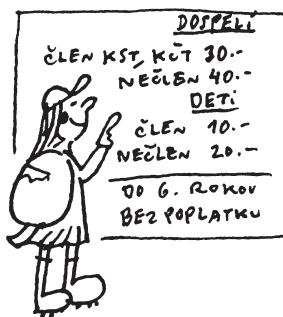 DOSPELÍ
ČLEN KST, KČT 30.-
NEČLEN 40.-
DETI
ČLEN 10.-
NEČLEN 20.-
DO 6. ROKOV
BEZ POPLATKU